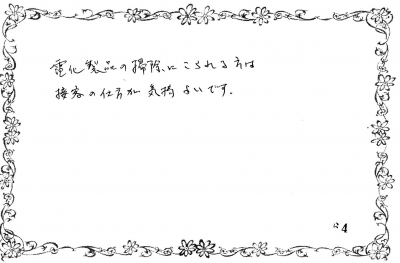 電化製品の掃除にこられる方は
接客の仕方が気持よいです.
4